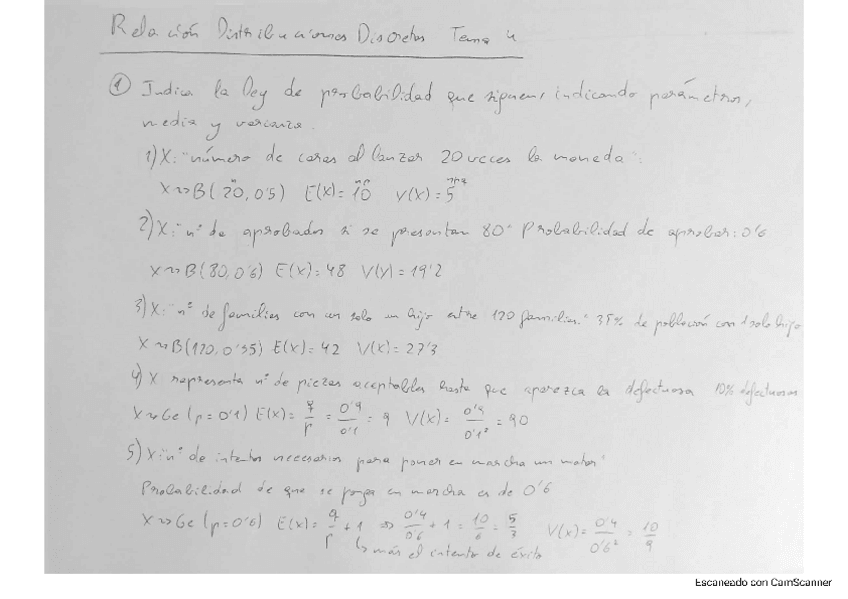 Relación Distribuciones Discretas Tema 4
① Indica la ley de probabilidad que siguen, indicando parámetros,
media y varianza.
1) X: "número de caras al lanzar 20 veces la moneda".
X ~> B(20, 0'5) E(X) = 10 V(X) = 5
n np npq
2) X: "nº de aprobados si se presentan 80" Probabilidad de aprobar: 0'6
X ~> B(80, 0'6) E(X) = 48 V(X) = 19'2
3) X: "nº de familias con un solo un hijo entre 120 familias." 35% de población con 1 solo hijo
X ~> B(120, 0'35) E(X) = 42 V(X) = 27'3
4) X representa nº de piezas aceptables hasta que aparezca la defectuosa 10% defectuosas
X ~> Ge (p = 0'1) E(X) = q/p = 0'9/0'1 = 9 V(X) = 0'9/0'1² = 90
5) X: nº de intentos necesarios para poner en marcha un motor"
Probabilidad de que se ponga en marcha es de 0'6
X ~> Ge (p = 0'6) E(X) = q/p + 1 => 0'4/0'6 + 1 = 10/6 = 5/3 V(X) = 0'4/0'6² = 10/9
↳ más el intento de éxito
Escaneado con CamScanner